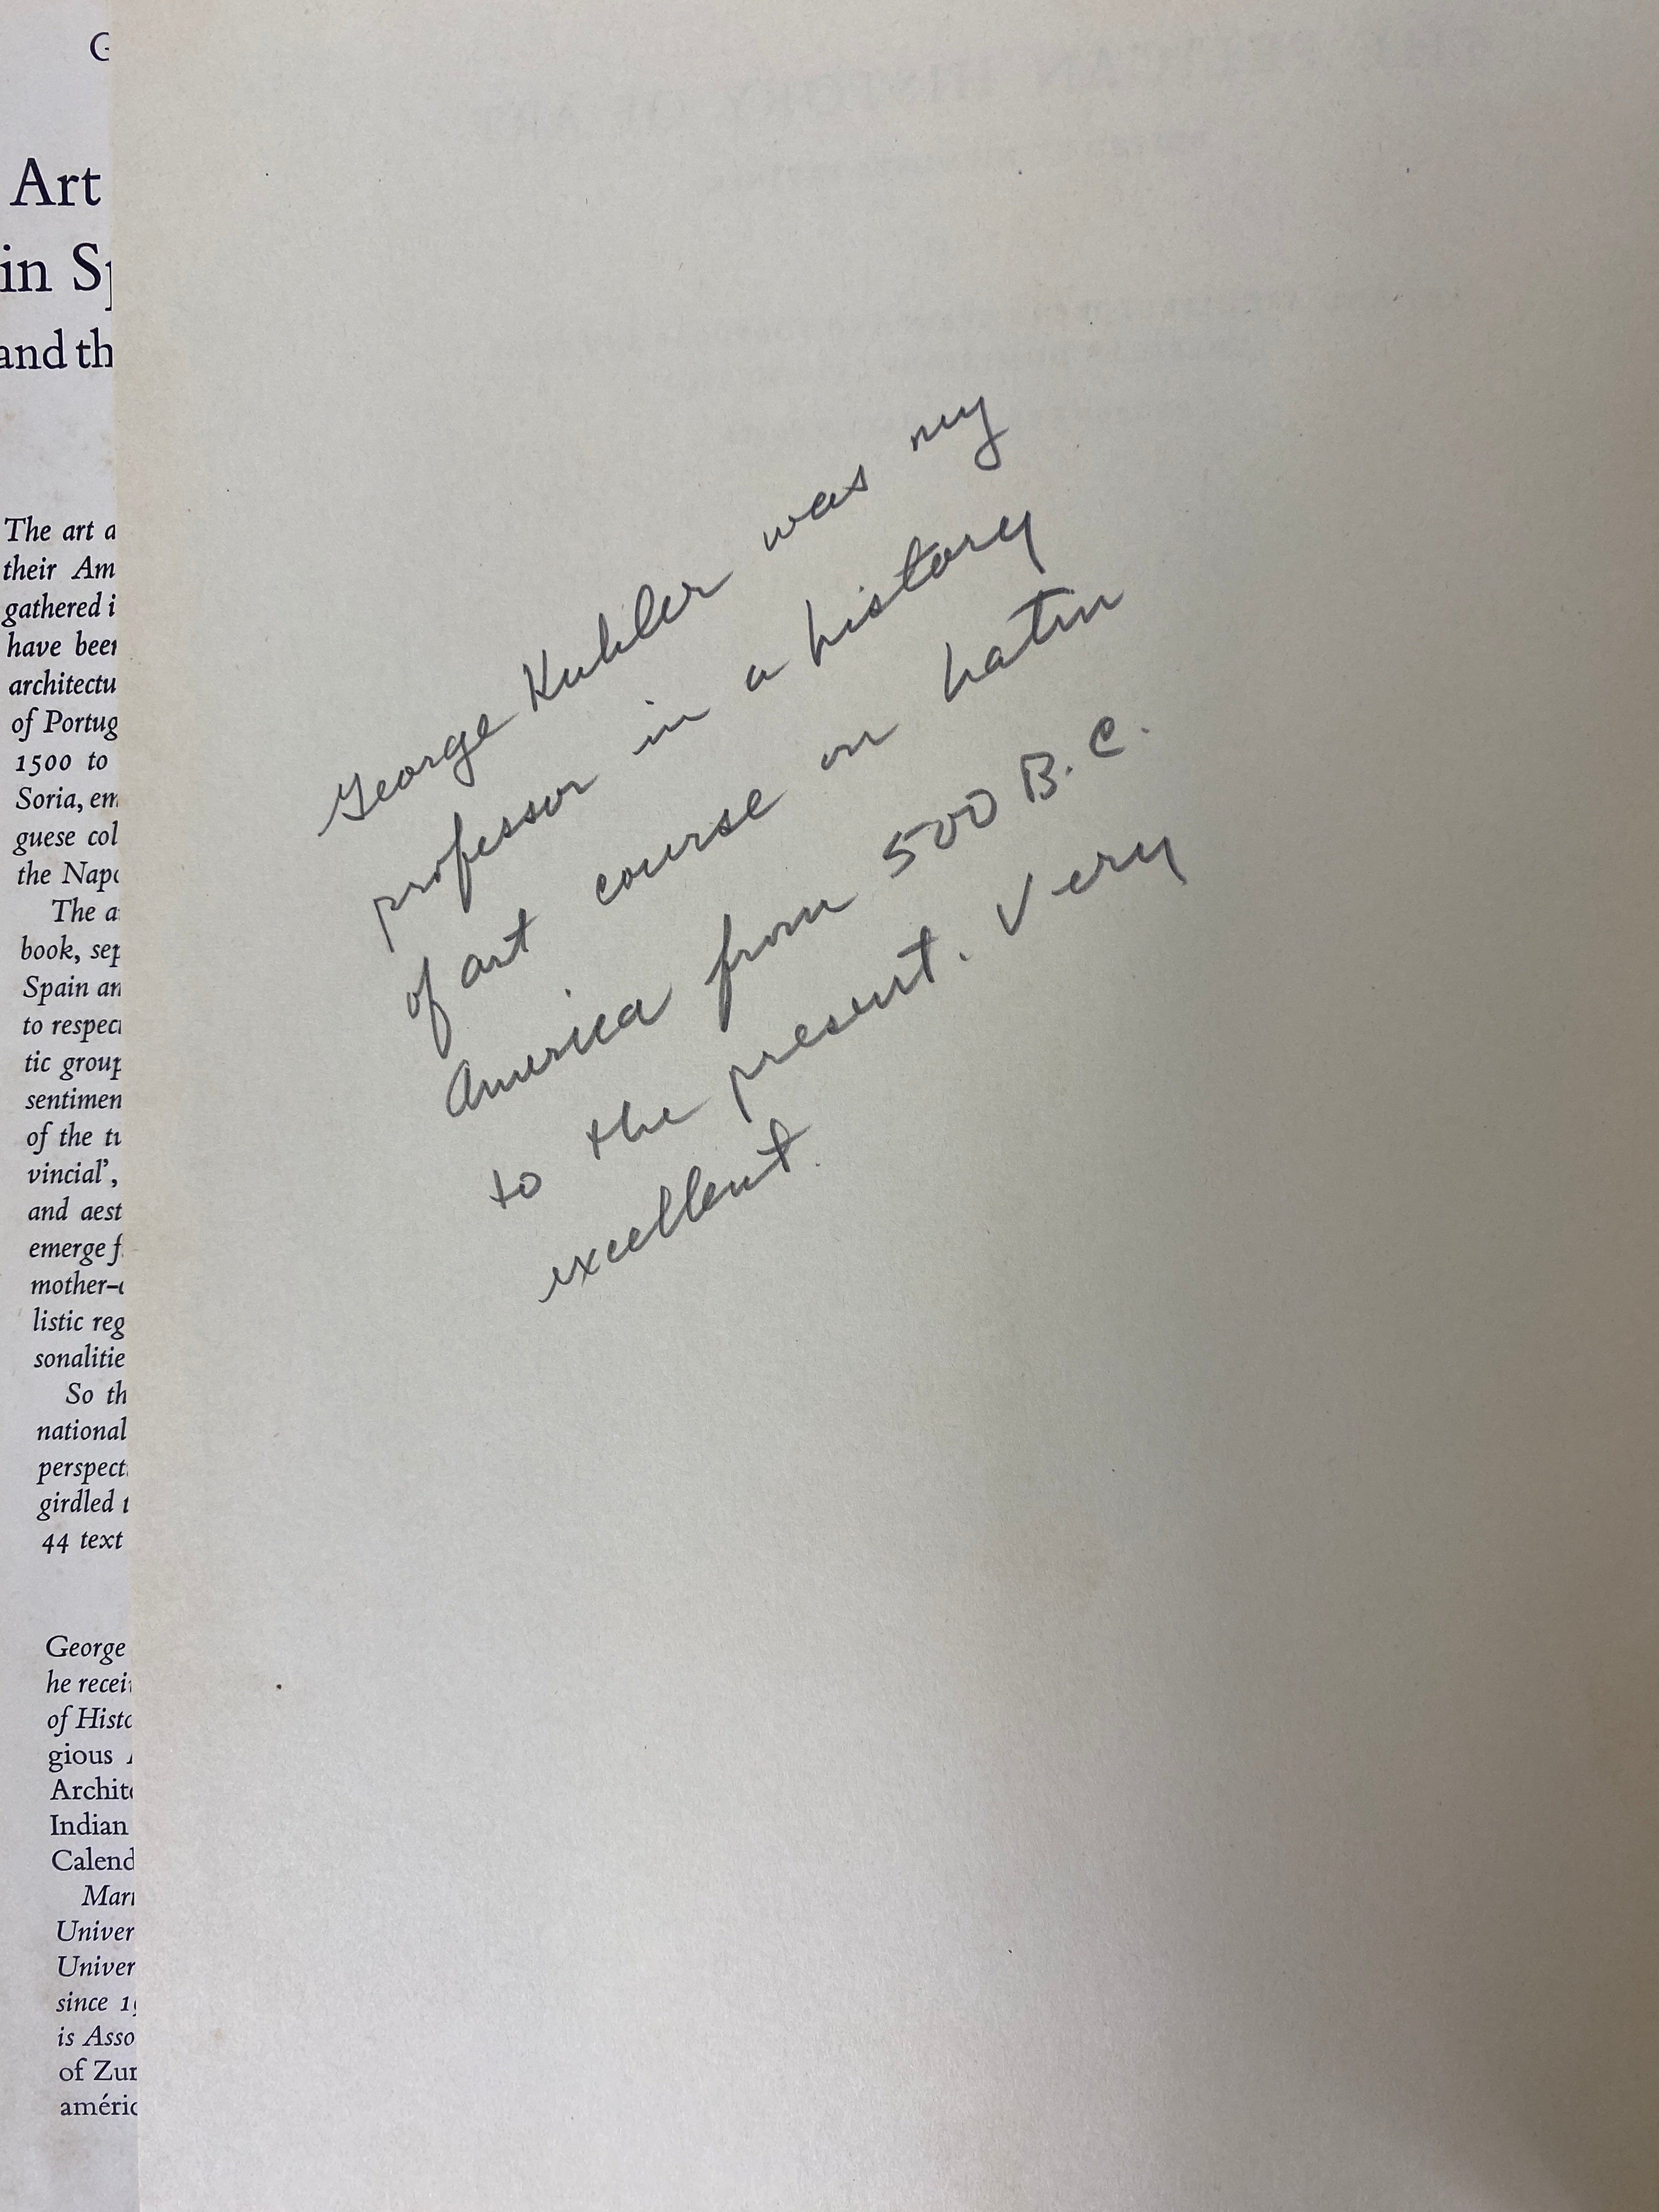 G
Art
in Sp
and th
The art a
their Am
gathered i
have been
architectu
of Portug
1500 to
Soria, em
guese col
the Napo
The a
book, sep
Spain an
to respect
tic group
sentimen
of the tu
vincial',
and aest
emerge f
mother-c
listic reg
sonalitie
So th
national
perspect
girdled t
44 text
George
he recei
of Histo
gious A
Archite
Indian
Calend
Mart
Univer
Univer
since 19
is Asso
of Zur
améric
HISTORY OF ART
George Kubler was my
professor in a history
of art course on Latin
America from 500 B.C.
to the present. Very
excellent.